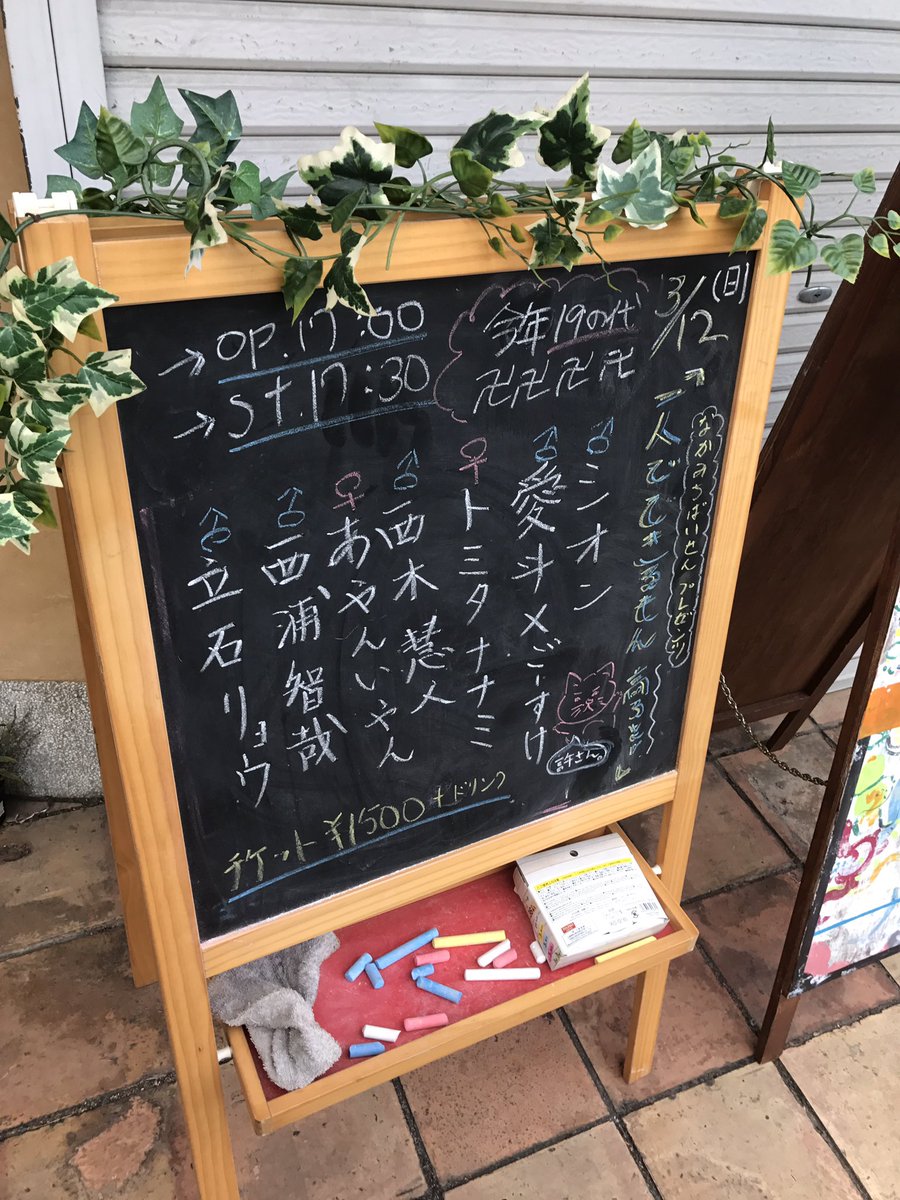 3/12(日)
なかみちばいとんプレゼンツ
一人でできるもん
今年19の代
卍卍卍卍
→OP.17:00
→St.17:30
♂シオン
♂愛斗メごーすけ
♀トミタナナミ
♂西木慧人
♀あやんいやん
♂西浦智哉
♂立石リョウ
許さん。
チケット¥1500+ドリンク